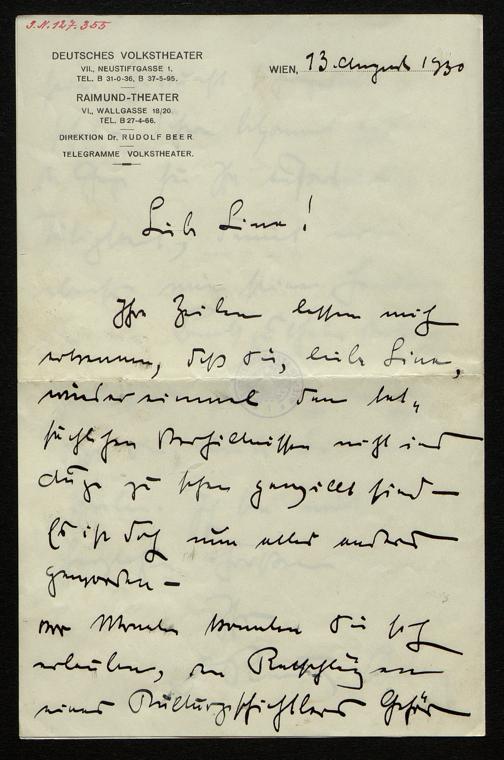 J.N. 127.355
DEUTSCHES VOLKSTHEATER
VII., NEUSTIFTGASSE 1.
TEL. B 31-0-36, B 37-5-95.
RAIMUND-THEATER
VI., WALLGASSE 18/20
TEL. B 27-4-66.
DIREKTION Dr. RUDOLF BEER.
TELEGRAMME VOLKSTHEATER.
WIEN, 13. August 1930
Liebe Lina!
Ihre Zeilen lassen mich
erkennen, daß Sie, liebe Lina,
wieder einmal den tat-
sächlichen Verhältnissen nicht ins
Auge zu sehen gewillt sind –
Es ist doch nun alles anders
geworden –
vor Monaten konnten Sie sich
erlauben, den Ratschlägen
eines Kulturgeschichtlers Gehör